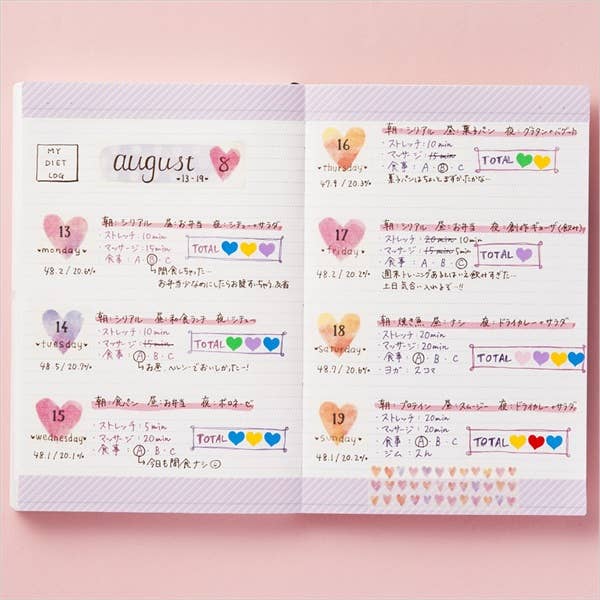 MY
DIET
LOG
august 8
•13-19•
13
•monday•
48.2 / 20.6%
朝:シリアル 昼:お弁当 夜:シチュー+サラダ
・ストレッチ:10min
・マッサージ:15min
・食事:A・Ⓑ・C
TOTAL
↳間食しちゃった…
お弁当少なめにしたらお腹すいちゃう。反省
14
•tuesday•
48.5 / 20.7%
朝:シリアル 昼:和食ランチ 夜:シチュー
・ストレッチ:10min
・マッサージ:15min
・食事:Ⓐ・B・C
TOTAL
↳お昼、ヘルシーでおいしかったー!
15
•wednesday•
48.1 / 20.1%
朝:食パン 昼:お弁当 夜:ボロネーゼ
・ストレッチ:5min
・マッサージ:20min
・食事:Ⓐ・B・C
TOTAL
↳今日も間食ナシ
16
•thursday•
47.9 / 20.3%
朝:シリアル 昼:菓子パン 夜:グラタン+バゲット
・ストレッチ:10min
・マッサージ:15min
・食事:A・Ⓑ・C
TOTAL
菓子パンはちょっとまずかったかな…
17
•friday•
48.2 / 20.2%
朝:シリアル 昼:お弁当 夜:創作ギョーザ(飲み)
・ストレッチ:20min 10min
・マッサージ:15min 5min
・食事:A・B・Ⓒ
TOTAL
週末トレーニングあるとはいえ飲みすぎた…
土日気合い入れるぞ…!!
18
•saturday•
48.7 / 20.6%
朝:焼き魚 昼:ナシ 夜:ドライカレー+サラダ
・ストレッチ:20min
・マッサージ:20min
・食事:Ⓐ・B・C
・ヨガ:スコマ
TOTAL
19
•sunday•
48.1 / 20.2%
朝:プロテイン 昼:スムージー 夜:ドライカレー+サラダ
・ストレッチ:20min
・マッサージ:20min
・食事:Ⓐ・B・C
・ジム:
TOTAL